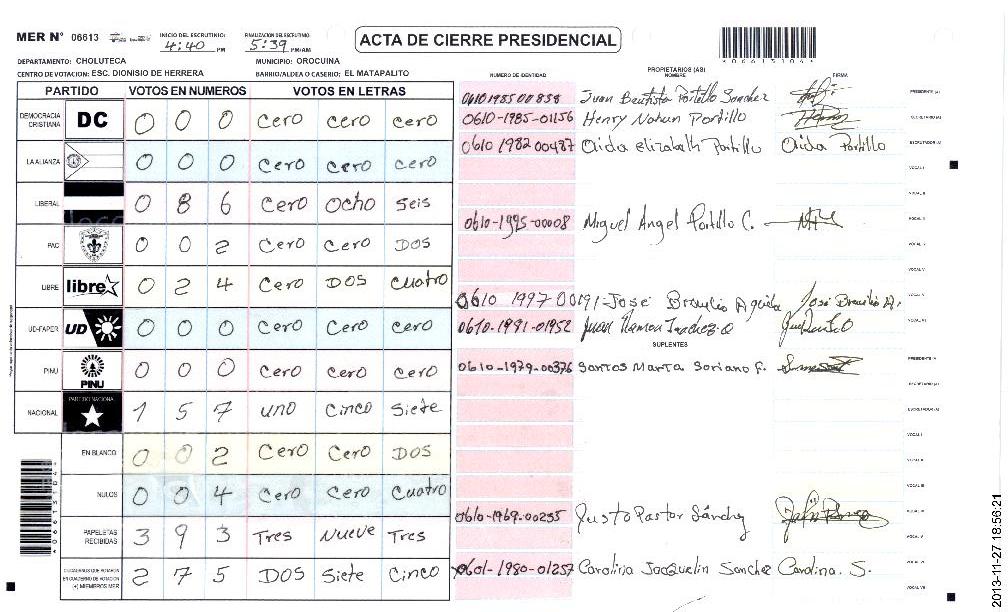 MER N° 06613 INICIO DEL ESCRUTINIO: 4:40 PM FINALIZACION DEL ESCRUTINIO: 5:39 PM/AM
ACTA DE CIERRE PRESIDENCIAL
DEPARTAMENTO: CHOLUTECA MUNICIPIO: OROCUINA
CENTRO DE VOTACION: ESC. DIONISIO DE HERRERA BARRIO/ALDEA O CASERIO: EL MATAPALITO
PARTIDO VOTOS EN NUMEROS VOTOS EN LETRAS
DEMOCRACIA CRISTIANA DC 0 0 0 Cero Cero Cero
LA ALIANZA 0 0 0 Cero Cero Cero
LIBERAL 0 8 6 Cero Ocho Seis
PAC 0 0 2 Cero Cero DOS
LIBRE libre 0 2 4 Cero DOS Cuatro
UD-FAPER UD 0 0 0 Cero Cero Cero
PINU PINU 0 0 0 Cero Cero Cero
NACIONAL PARTIDO NACIONAL 1 5 7 uno Cinco Siete
EN BLANCO 0 0 2 Cero Cero DOS
NULOS 0 0 4 Cero Cero Cuatro
PAPELETAS RECIBIDAS 3 9 3 Tres Nueve Tres
CIUDADANOS QUE VOTARON
EN CUADERNO DE VOTACION
(+) MIEMBROS MER 2 7 5 DOS Siete Cinco
NUMERO DE IDENTIDAD PROPIETARIOS (AS) NOMBRE FIRMA
0610 1985 00838 Juan Bautista Portillo Sanchez PRESIDENTE (A)
0610-1985-01156 Henry Nohun Portillo SECRETARIO (A)
0610 1982 00487 Oida Elizabeth Portillo Oida Portillo ESCRUTADOR (A)
VOCAL I
VOCAL II
0610-1995-00008 Miguel Angel Portillo C. VOCAL III
VOCAL IV
VOCAL V
0610 1997 00191 - José Braulio Aguila José Braulio A.
0610-1991-01952 Juan Ramon Sanchez O
SUPLENTES
0610-1979-00376 Santos Marta Soriano F. PRESIDENTE (A)
SECRETARIO (A)
ESCRUTADOR (A)
VOCAL I
VOCAL II
VOCAL III
0610-1969-00235 Justo Pastor Sánchez
0601-1980-01257 Carolina Jacquelin Sanchez Carolina. S.
2013-11-27 18:56:21